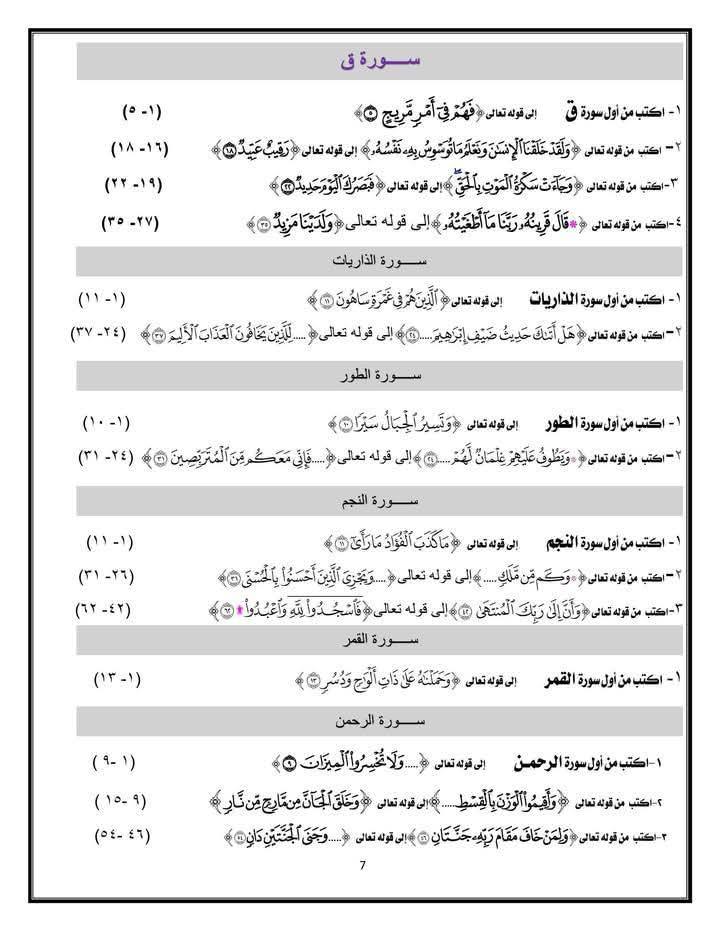 ســـورة ق
١- اكتب من أول سورة ق إلى قوله تعالى ﴿فَهُمْ فِىٓ أَمْرٍ مَّرِيجٍ ٥﴾ (١- ٥)
٢- اكتب من قوله تعالى ﴿وَلَقَدْ خَلَقْنَا ٱلْإِنسَٰنَ وَنَعْلَمُ مَا تُوَسْوِسُ بِهِۦ نَفْسُهُۥ﴾ إلى قوله تعالى ﴿رَقِيبٌ عَتِيدٌ ١٨﴾ (١٦- ١٨)
٣-اكتب من قوله تعالى ﴿وَجَآءَتْ سَكْرَةُ ٱلْمَوْتِ بِٱلْحَقِّ ۖ﴾إلى قوله تعالى ﴿فَبَصَرُكَ ٱلْيَوْمَ حَدِيدٌ ٢٢﴾ (١٩- ٢٢)
٤-اكتب من قوله تعالى ﴿* قَالَ قَرِينُهُۥ رَبَّنَا مَآ أَطْغَيْتُهُۥ﴾إلى قوله تعالى ﴿وَلَدَيْنَا مَزِيدٌ ٣٥﴾ (٢٧- ٣٥)
ســـورة الذاريات
١- اكتب من أول سورة الذاريات إلى قوله تعالى ﴿ٱلَّذِينَ هُمْ فِى غَمْرَةٍ سَاهُونَ ١١﴾ (١- ١١)
٢-اكتب من قوله تعالى ﴿هَلْ أَتَىٰكَ حَدِيثُ ضَيْفِ إِبْرَٰهِيمَ.....٢٤﴾إلى قوله تعالى ﴿.....لِّلَّذِينَ يَخَافُونَ ٱلْعَذَابَ ٱلْأَلِيمَ ٣٧﴾ (٢٤- ٣٧)
ســـورة الطور
١- اكتب من أول سورة الطور إلى قوله تعالى ﴿وَتَسِيرُ ٱلْجِبَالُ سَيْرًا ١٠﴾ (١- ١٠)
٢-اكتب من قوله تعالى ﴿* وَيَطُوفُ عَلَيْهِمْ غِلْمَانٌ لَّهُمْ.....٢٤﴾إلى قوله تعالى ﴿.....فَإِنِّى مَعَكُم مِّنَ ٱلْمُتَرَبِّصِينَ ٣١﴾ (٢٤- ٣١)
ســـورة النجم
١- اكتب من أول سورة النجم إلى قوله تعالى ﴿مَا كَذَبَ ٱلْفُؤَادُ مَا رَأَىٰٓ ١١﴾ (١- ١١)
٢-اكتب من قوله تعالى ﴿* وَكَم مِّن مَّلَكٍ.....﴾إلى قوله تعالى ﴿.....وَيَجْزِىَ ٱلَّذِينَ أَحْسَنُوا۟ بِٱلْحُسْنَى ٣١﴾ (٢٦- ٣١)
٣-اكتب من قوله تعالى ﴿وَأَنَّ إِلَىٰ رَبِّكَ ٱلْمُنتَهَىٰ ٤٢﴾إلى قوله تعالى ﴿فَٱسْجُدُوا۟ لِلَّهِ وَٱعْبُدُوا۟ * ٦٢﴾ (٤٢- ٦٢)
ســـورة القمر
١- اكتب من أول سورة القمر إلى قوله تعالى ﴿وَحَمَلْنَٰهُ عَلَىٰ ذَاتِ أَلْوَٰحٍ وَدُسُرٍ ١٣﴾ (١- ١٣)
ســـورة الرحمن
١-اكتب من أول سورة الرحمـن إلى قوله تعالى ﴿.....وَلَا تُخْسِرُوا۟ ٱلْمِيزَانَ ٩﴾ (١- ٩)
٢-اكتب من قوله تعالى ﴿وَأَقِيمُوا۟ ٱلْوَزْنَ بِٱلْقِسْطِ.....﴾إلى قوله تعالى ﴿وَخَلَقَ ٱلْجَآنَّ مِن مَّارِجٍ مِّن نَّارٍ﴾ (٩- ١٥)
٣-اكتب من قوله تعالى ﴿وَلِمَنْ خَافَ مَقَامَ رَبِّهِۦ جَنَّتَانِ ٤٦﴾إلى قوله تعالى ﴿.....وَجَنَى ٱلْجَنَّتَيْنِ دَانٍ ٥٤﴾ (٤٦- ٥٤)
7